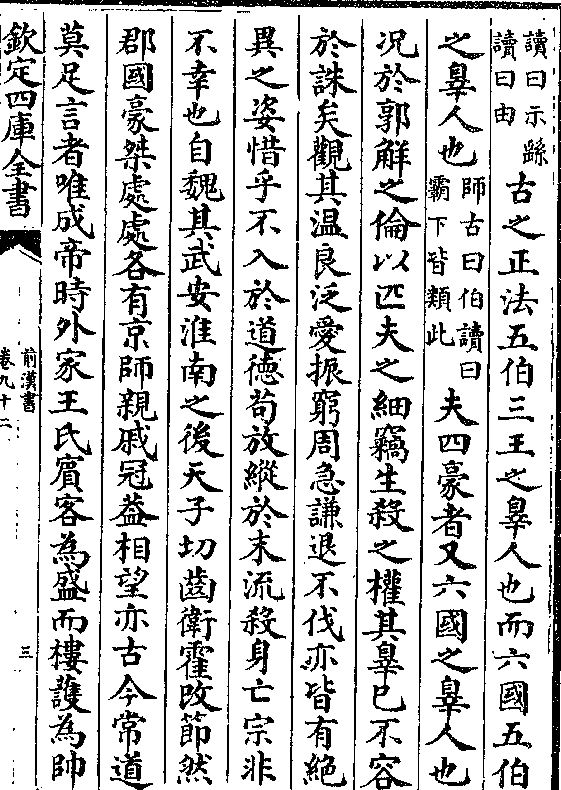 讀曰示繇
讀曰由
古之正法五伯三王之辠人也而六國五伯
之辠人也
師古曰伯讀曰
霸下皆類此
夫四豪者又六國之辠人也
況於郭解之倫以匹夫之細竊生殺之權其辠已不容
於誅矣觀其温良泛愛振窮周急謙退不伐亦皆有絶
異之姿惜乎不入於道徳苟放縱於末流殺身亡宗非
不幸也自魏其武安淮南之後天子切齒衛霍改節然
郡國豪桀處處各有京師親戚冠葢相望亦古今常道
莫足言者唯成帝時外家王氏賓客為盛而樓護為帥
欽定四庫全書
前漢書
卷九十二
三